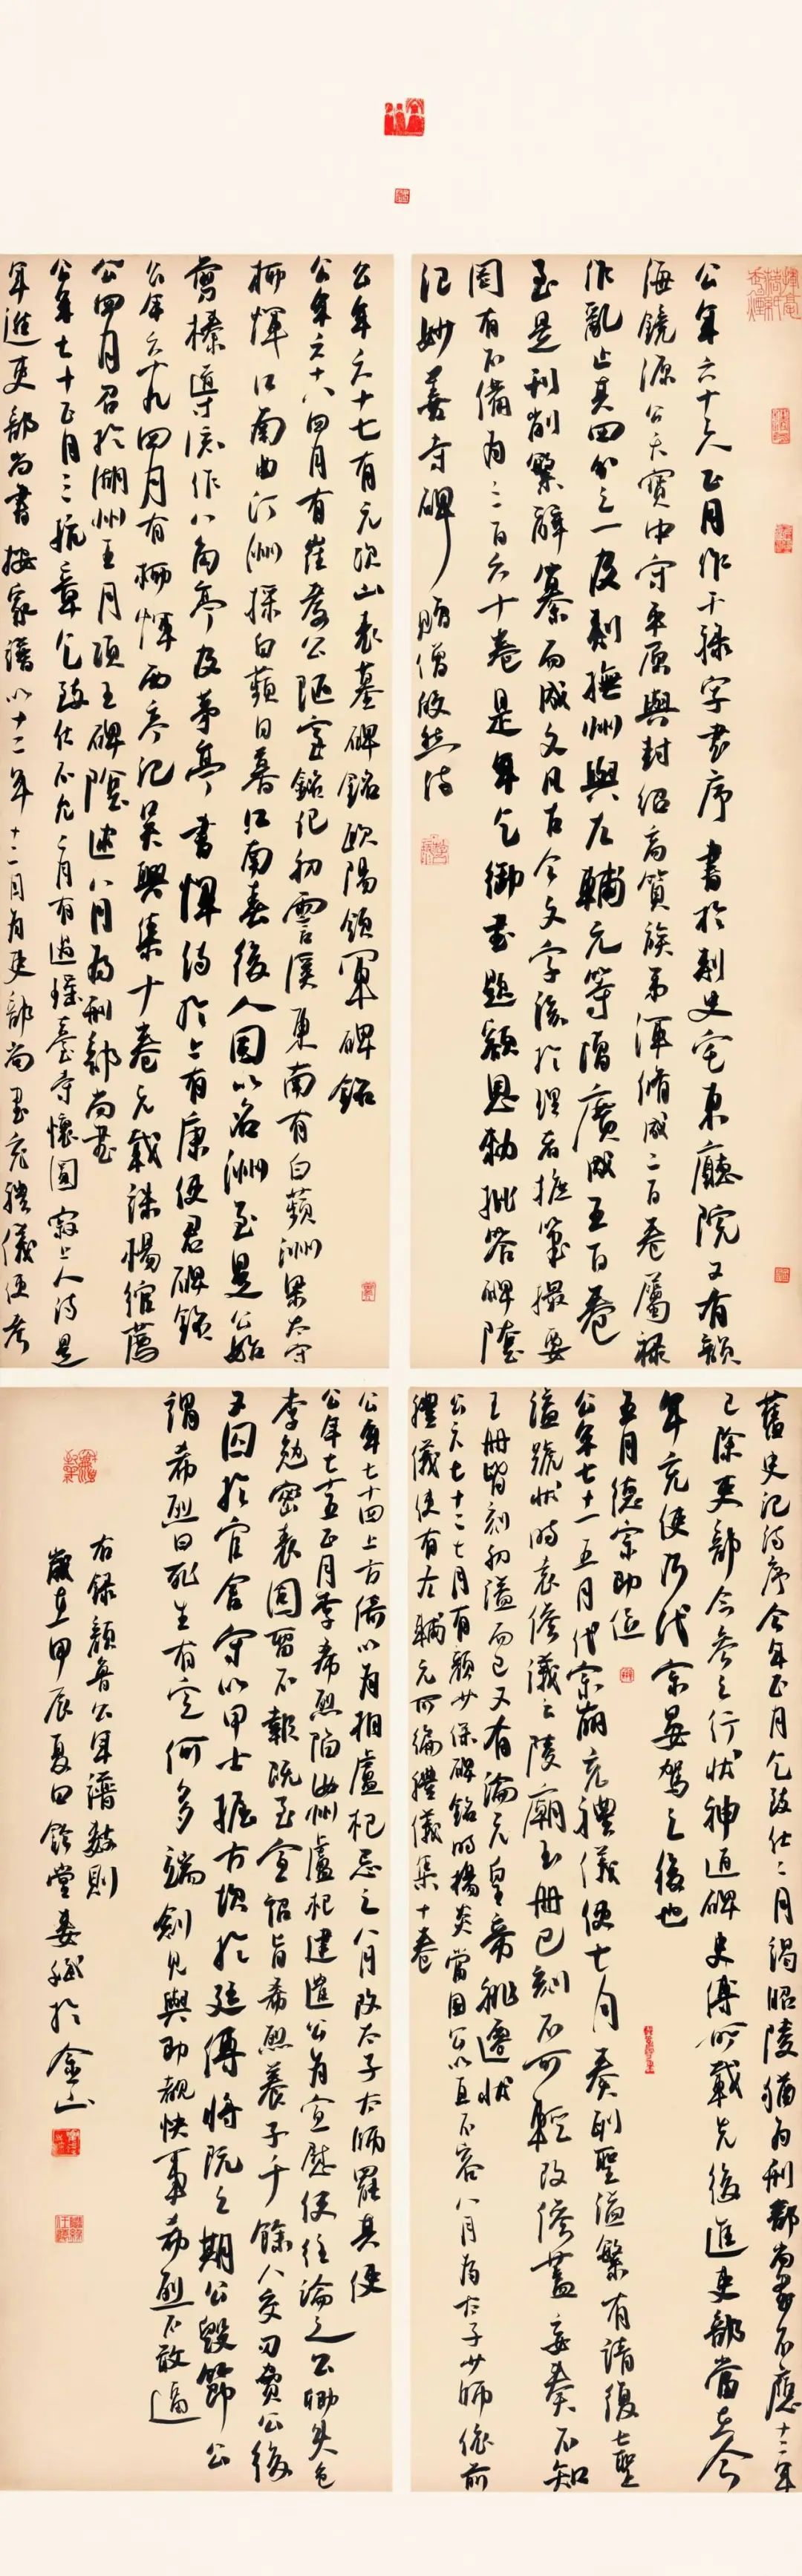 公年六十六正月作干祿字書序書於刺史宅東廳院又有韻
海鏡源公天寶中守平原與封紹高篔族弟渾脩成二百卷屬祿
作亂止具四分之一及刺撫州與左輔元等增廣成五百卷
至是刊削繁辭纂而成文凡古今文字該於理者摭華撮要
罔有不備為三百六十卷是年乞御書題額恩勅批答碑陰
記妙喜寺碑贈僧皎然詩
公年六十七有元次山表墓碑銘歐陽領軍碑銘
公年六十八四月有崔孝公陋室銘記初霅溪東南有白蘋洲梁太守
柳惲江南曲汀洲採白蘋日暮江南春後人因以名洲至是公始
剪榛導流作八角亭及茅亭書惲詩於上有康使君碑銘
公年六十九四月有柳惲西亭記吳興集十卷元載誅楊綰薦
公四月召於湖州五月項王碑陰述八月為刑部尚書
公年七十正月三抗章乞致仕不允二月有過瑤臺寺懷圓寂上人詩是
年進吏部尚書按家譜以十二年十二月為吏部尚書充禮儀使考
舊史記詩序今年正月乞致仕二月謁昭陵猶為刑部尚書不應十二年
已除吏部今參之行狀神道碑史傳所載先後進吏部當在今
年充使乃代宗晏駕之後也
五月德宗即位
公年七十一五月代宗崩充禮儀使七月奏列聖謚繁有請復七聖
謚號狀時袁傪議云陵廟玉冊已刻不可輕改傪蓋妄奏不知
玉冊皆刻初謚而已又有論元皇帝祧遷狀
公六七十二七月有顏少保碑銘時楊炎當國公以直不容八月為太子少師依前
禮儀使有左輔元所編禮儀集十卷
公年七十四上方倚以為相盧杞忌之八月改太子太師罷其使
公年七十五正月李希烈陷汝州盧杞建遣公為宣慰使往諭之公卿失色
李勉密表固留不報既至宣詔旨希烈養子千餘人交刃賁公後
又囚於官舍守以甲士掘方坎於廷傳將阬之期公毀節公
謂希烈曰死生有定何多端劍見與即覯快事希烈不敢逼
右錄顏魯公年譜數則
歲在甲辰夏日於金山